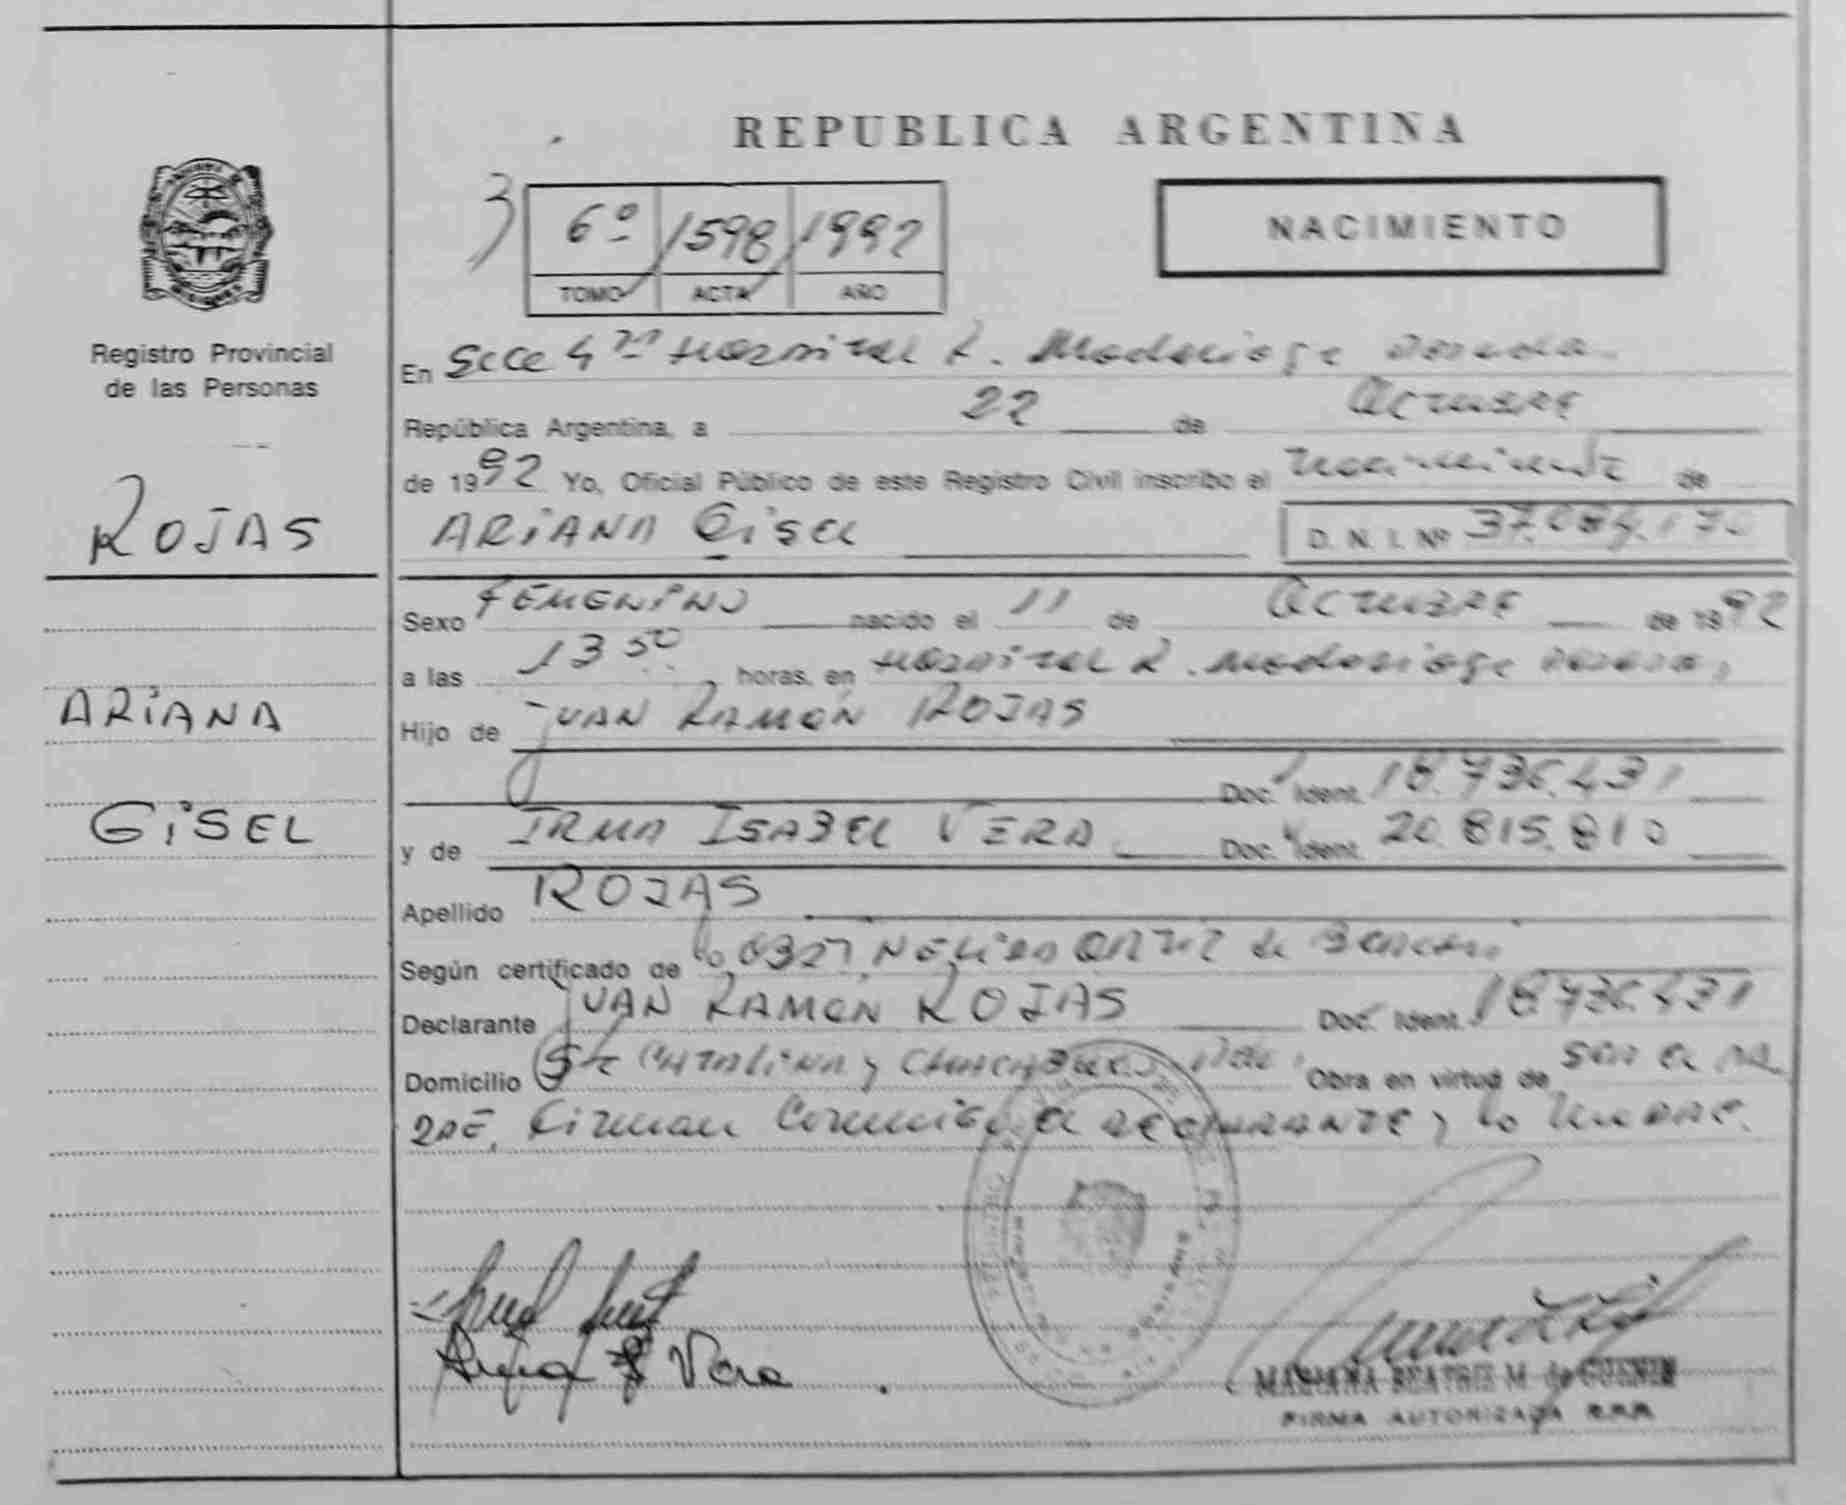 REPUBLICA ARGENTINA
3
6º 1598 1992
TOMO ACTA AÑO
NACIMIENTO
Registro Provincial
de las Personas
ROJAS
ARIANA
GISEL
En Secc 4ta Hospital R. Madariaga Posadas
República Argentina, a 22 de Octubre
de 1992 Yo, Oficial Público de este Registro Civil inscribo el nacimiento de
ARIANA GISEL
D. N. I. Nº 37.084.170
Sexo FEMENINO nacido el 11 de Octubre de 1992
a las 13 50 horas, en Hospital R. Madariaga Posadas
Hijo de JUAN RAMON ROJAS
Doc. Ident. 18.736.431
y de IRMA ISABEL VERA Doc. Ident. 20.815.810
Apellido ROJAS
Según certificado de la Obst. NELIDA ORTIZ de
Declarante JUAN RAMON ROJAS Doc. Ident. 18.736.431
Domicilio Sta CATALINA y CHACABUCO Obra en virtud de SER EL PA
DRE. Firman Conmigo el DECLARANTE y la MADRE.
Vera
MARIANA BEATRIZ M. de
FIRMA AUTORIZADA R.P.P.